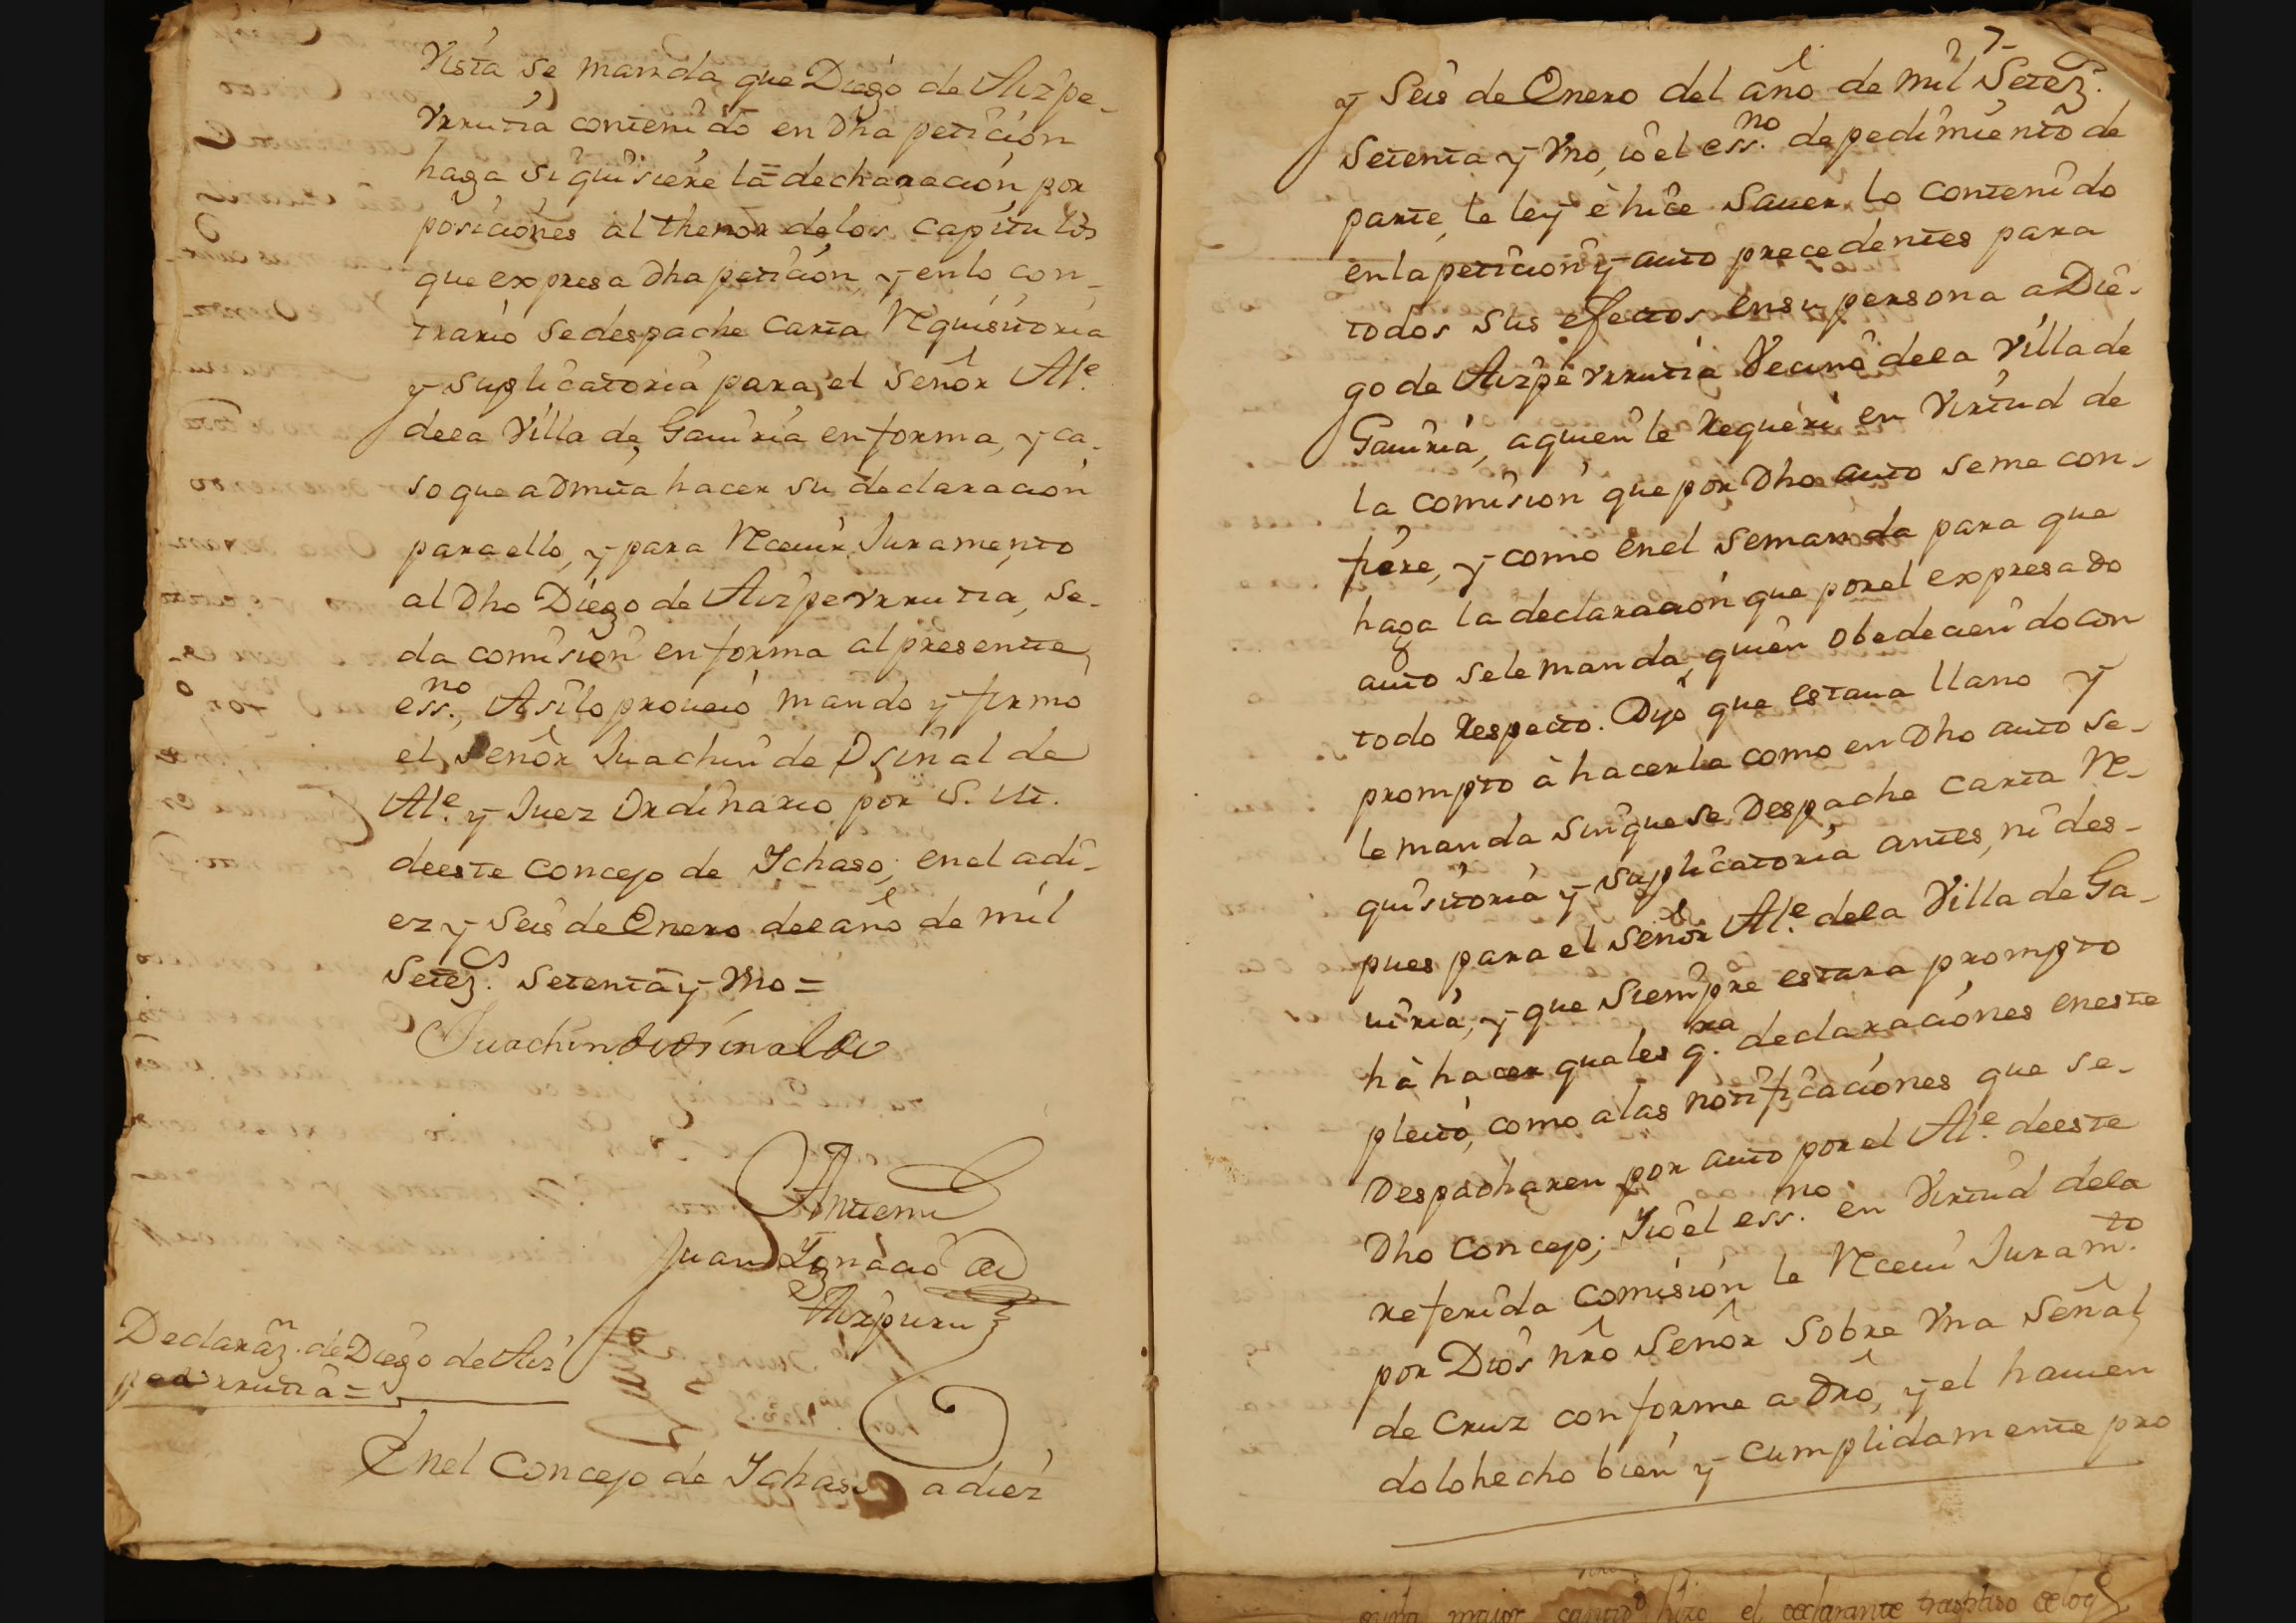 Vista se manda que Diego de Aizpe-
Vrrutia contenido en Dha peticion
haga si quisiere la declaracion por
posiciones al thenor delos capitulos
que expresa Dha peticion, y enlo con-
trario se despache carta Requisitoria
y suplicatoria para el señor Ale.
dela Villa de Gauiria en forma, y ca-
so que admita hacer su declaracion
para ello, y para Receuir Juramento
al Dho Diego de Aizpe Vrrutia, se-
da comision en forma al presente
essno. Asilo proueió mando y firmó
el señor Juachin de Osinalde
Ale. y Juez Ordinario por S. M.
deeste concejo de Ychaso; en el a di-
ez y Seis de Enero del año de mil
Setezs. Setenta y Vno =
Juachin de Osinalde
Antemi
Juan Ygnacio de
Aizpuru
Declarazn. de Diego de Aiz
pe vrrutia =
Enel Concejo de Ychaso a diez
7
y Seis de Enero del año de mil Setezs.
Setenta y Vno, io el essno. de pedimiento de
parte, le ley è hice sauer lo contenido
en la peticion y auto precedentes para
todos sus efectos en su persona a Die-
go de Aizpe vrrutia Vecino dela Villa de
Gauiria, a quien le requeri en Virtud de
la comision que por Dho auto seme con-
fiere, y como en el se manda para que
haga la declaracion que por el expresado
auto sele manda, quien obedeciendo con
todo respecto. Dijo que estaua llano y
prompto à hacerla como en Dho auto se-
le manda sin que se Despache carta Re-
quisitoria y suplicatoria antes, ni des-
pues para el señor Ale. dela Villa de Ga-
uiria, y que siempre estara prompto
hà hacer quales qra. declaraciones en este
pleito, como a las notificaciones que se-
Despacharen por auto por el Ale. deeste
Dho Concejo; Y io el essno. en Virtud dela
referida comision le Receui Juramto.
por Dios nrô Señor Sobre Vna Señal
de Cruz conforme a Drô, y el hauien
dolo hecho bien y cumplidamente pro
maior hizo el declarante traspaso delos